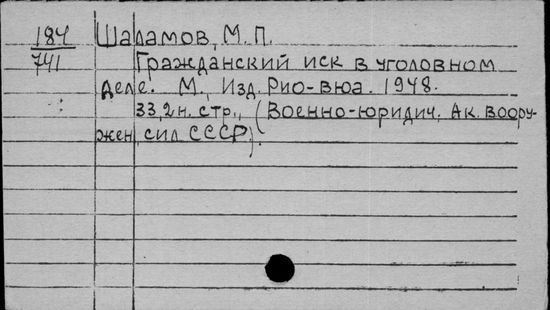 184 Шаламов, М.П.
741 Гражданский иск в уголовном
деле. М., Изд. Рио-вюа. 1948.
33,2 н. стр., (Военно-юридич. Ак. воору-
жен. сил СССР).